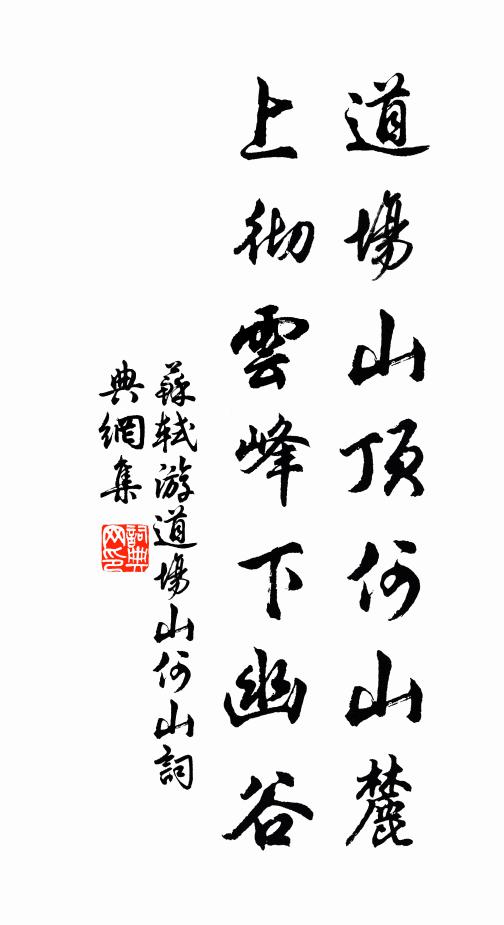 道場山頂何山麓
上彻雲峰下幽谷
蘇軾游道場山何山詞
典網集
詞典网印